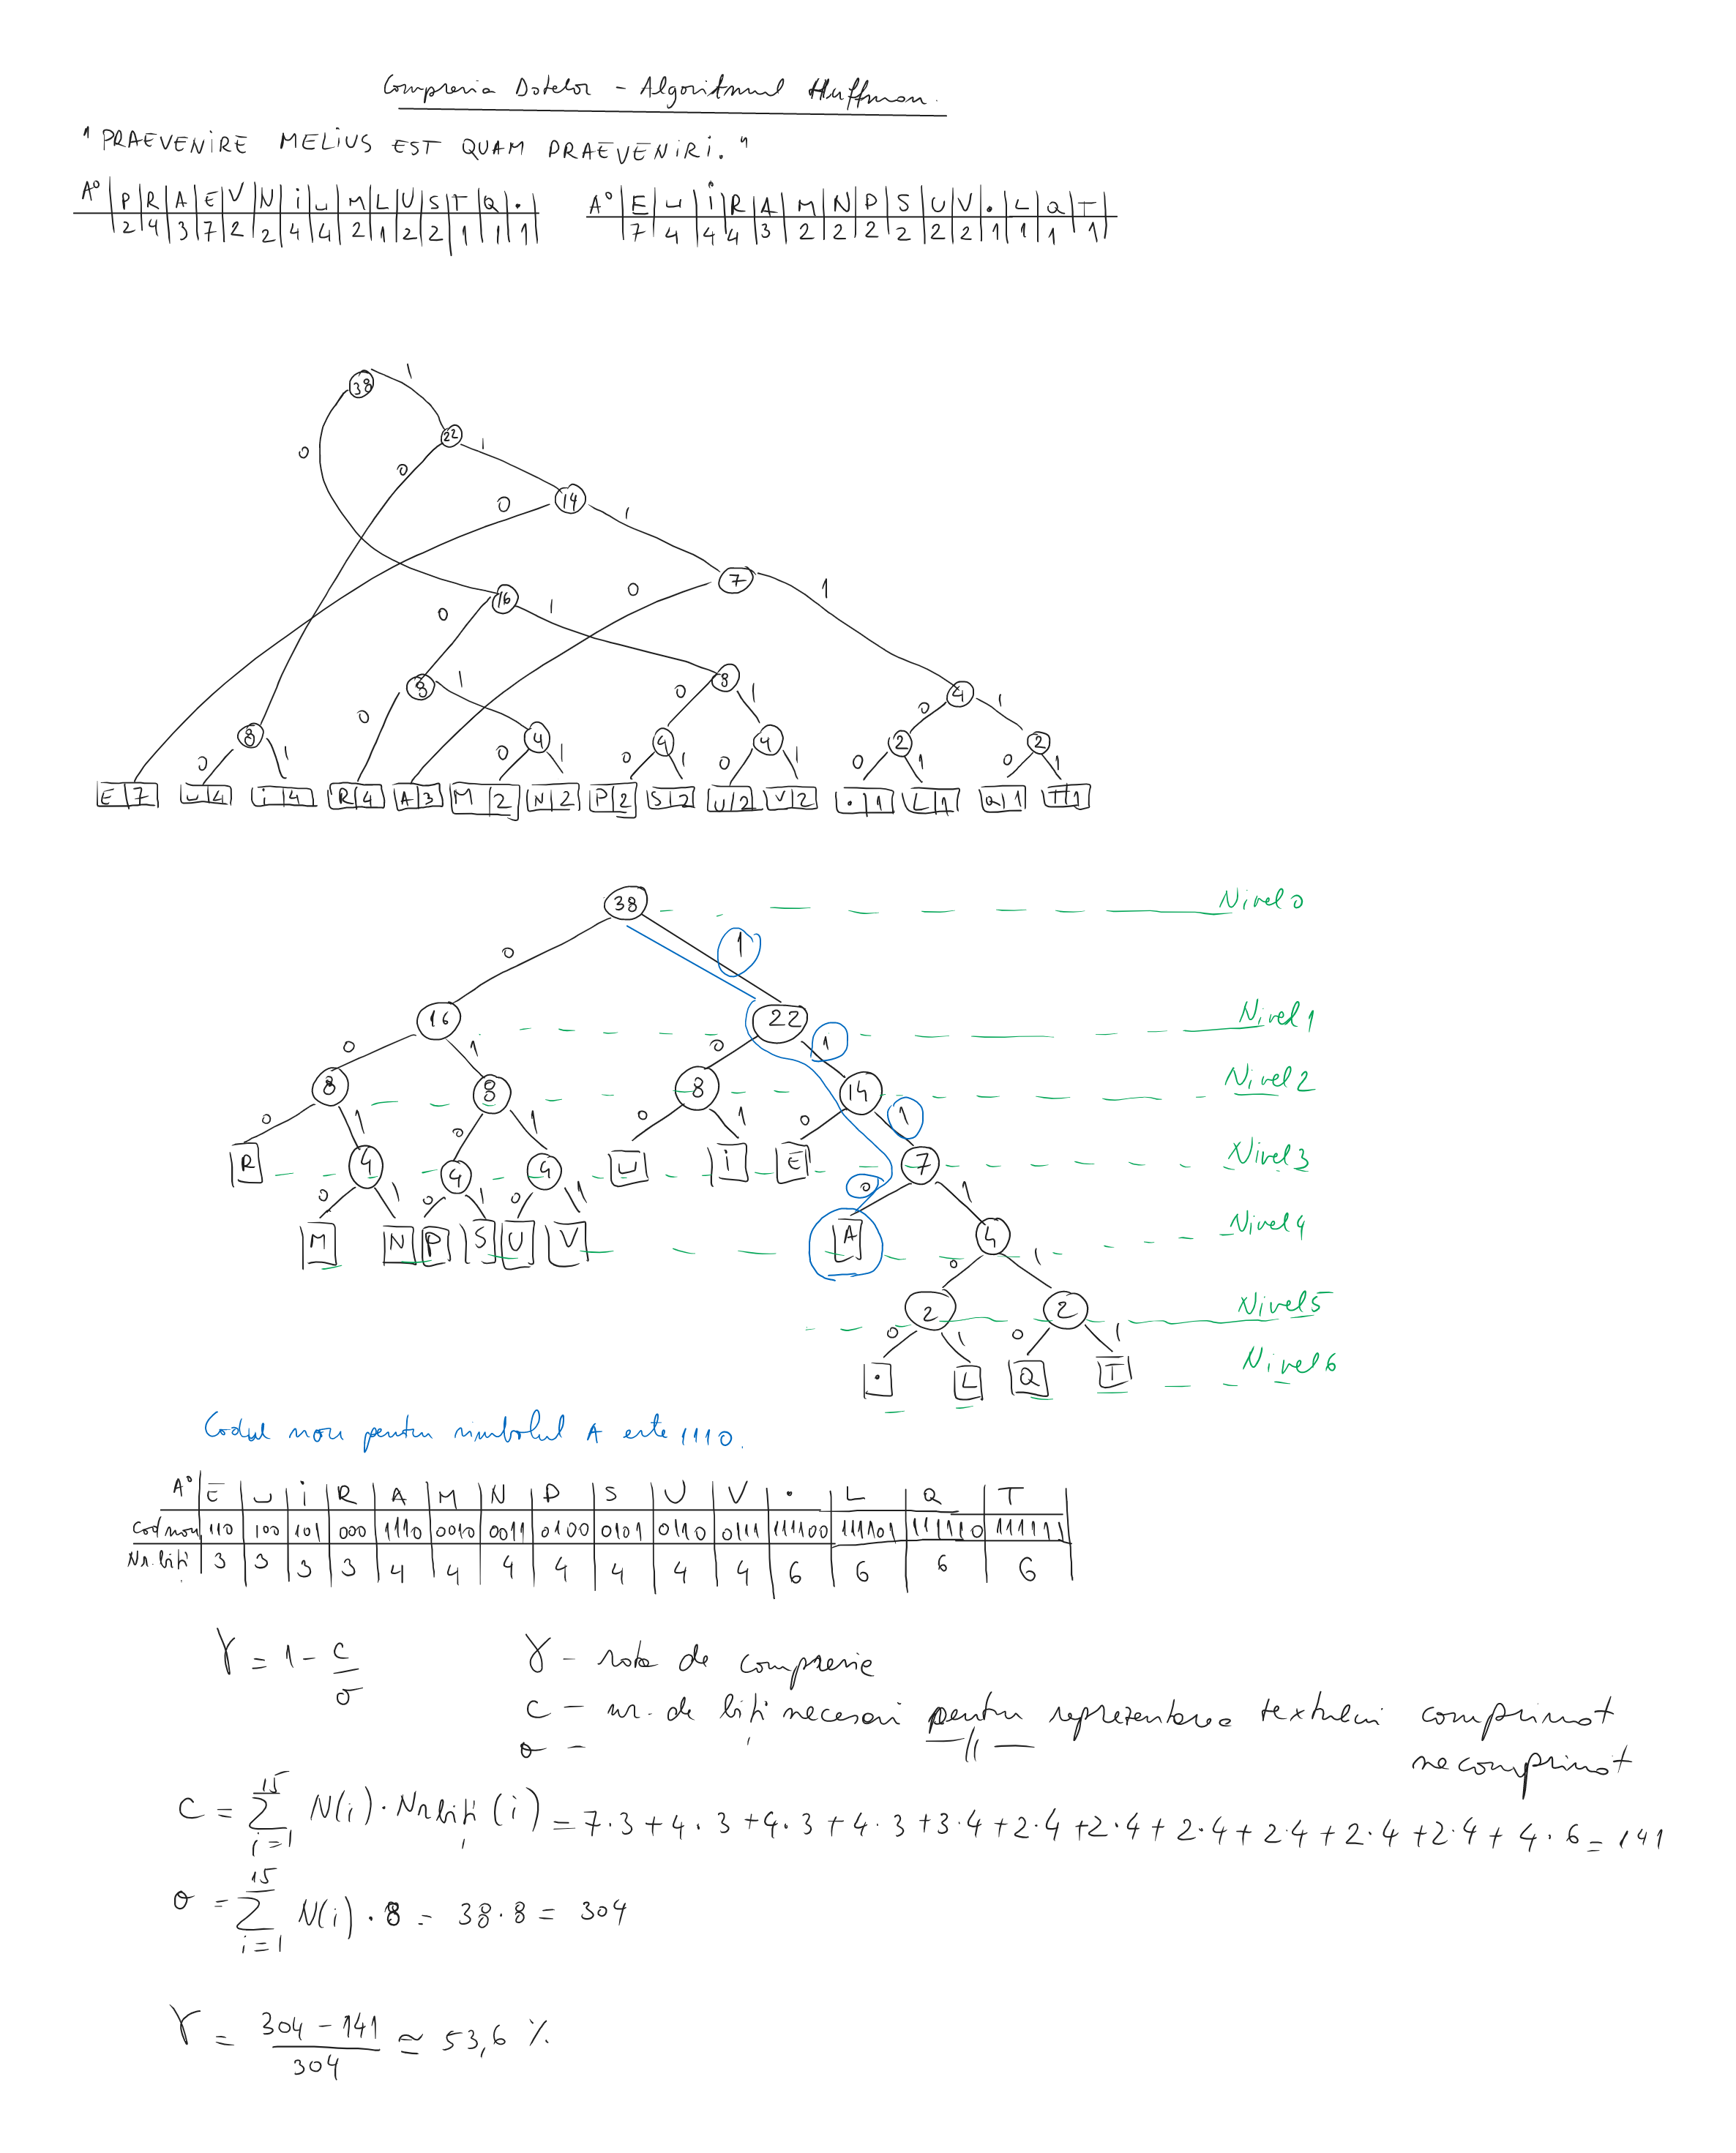 Compresia Datelor - Algoritmul Huffman.
"PRAEVENIRE MELIUS EST QUAM PRAEVENIRI."
A⁰ | P | R | A | E | V | N | i | ⌴ | M | L | U | S | T | Q | .
2 | 4 | 3 | 7 | 2 | 2 | 4 | 4 | 2 | 1 | 2 | 2 | 1 | 1 | 1
A⁰ | E | ⌴ | i | R | A | M | N | P | S | U | V | . | L | Q | T
7 | 4 | 4 | 4 | 3 | 2 | 2 | 2 | 2 | 2 | 2 | 1 | 1 | 1 | 1
38 1
0 22 1
0
0 14 1
0 7 1
0 16 1
8 1 0 8 1 4
0 0 1
8 0 4 4 4 2 2
0 1 0 1 0 1 0 1 0 1 0 1
E 7 ⌴ 4 i 4 R 4 A 3 M 2 N 2 P 2 S 2 U 2 V 2 . 1 L 1 Q 1 T 1
38 Nivel 0
0 1
16 22 Nivel 1
0 1 0 1
8 8 8 14 Nivel 2
0 1 0 1 0 1 0 1
R 4 4 4 ⌴ i E 7 Nivel 3
0 1 0 1 0 1 0 1
M N P S U V A 4 Nivel 4
0 1
2 2 Nivel 5
0 1 0 1
. L Q T Nivel 6
Codul nou pentru simbolul A este 1110.
A⁰ | E | ⌴ | i | R | A | M | N | P | S | U | V | . | L | Q | T
Cod nou | 110 | 100 | 101 | 000 | 1110 | 0010 | 0011 | 0100 | 0101 | 0110 | 0111 | 111100 | 111101 | 111110 | 111111
Nr. biți | 3 | 3 | 3 | 3 | 4 | 4 | 4 | 4 | 4 | 4 | 4 | 6 | 6 | 6 | 6
γ = 1 - c/σ
γ - rata de compresie
c - nr. de biți necesari pentru reprezentarea textului comprimat
σ - — // — necomprimat
c = Σ_{i=1}^{15} N(i) · Nr biți (i) = 7·3 + 4·3 + 4·3 + 4·3 + 3·4 + 2·4 + 2·4 + 2·4 + 2·4 + 2·4 + 2·4 + 4·6 = 141
σ = Σ_{i=1}^{15} N(i) · 8 = 38·8 = 304
γ = (304 - 141)/304 ≃ 53,6 %